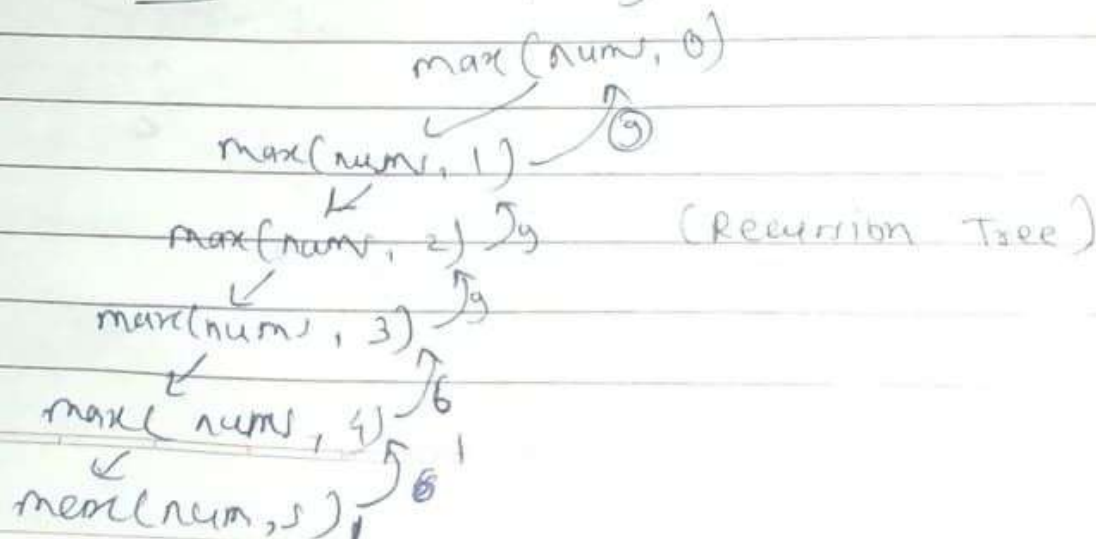 max(nums, 0)
9
max(nums, 1)
max(nums, 2) 9 (Recursion Tree)
9
max(nums, 3)
6
max(nums, 4)
6
max(num, 5)